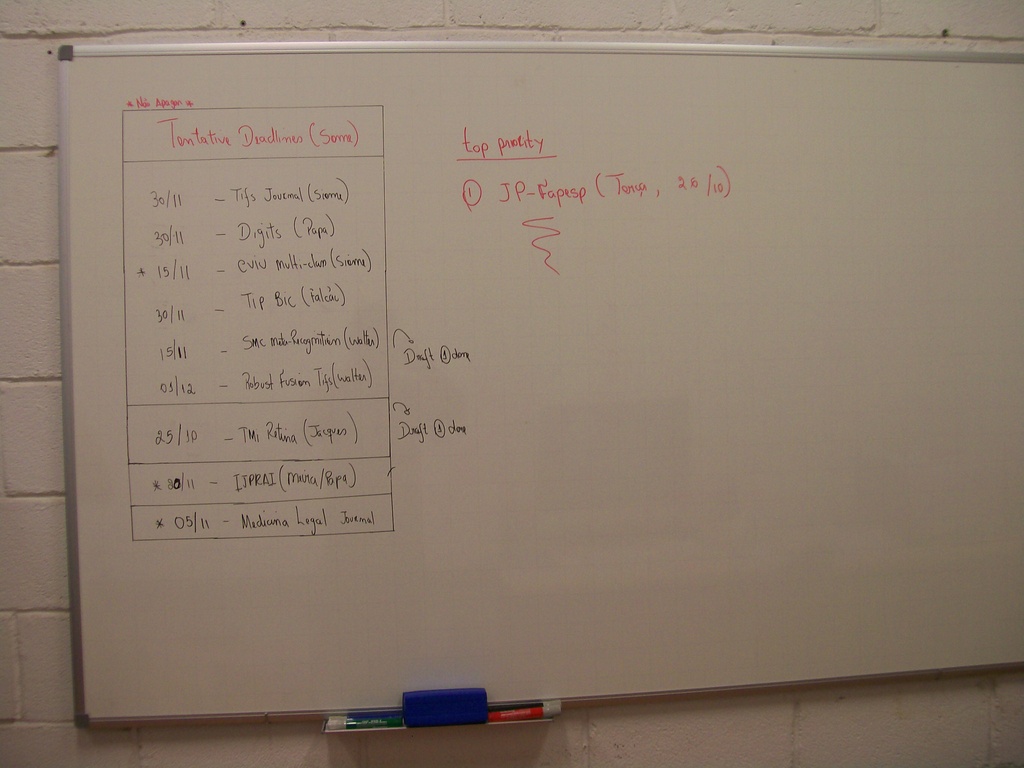 * Não Apagar *
Tentative Deadlines (Some)
30/11 - Tifs Journal (Siome)
30/11 - Digits (Papa)
* 15/11 - CVIU multi-class (Siome)
30/11 - Tip BIC (Falcão)
15/11 - SMC meta-Recognition (Walter)
Draft 1 done
01/12 - Robust Fusion Tifs (Walter)
25/10 - TMI Retina (Jacques)
Draft 1 done
* 30/11 - IJPRAI (/Papa)
* 05/11 - Medicina Legal Journal
top priority
1 JP-Fapesp (Terça, 26/10)